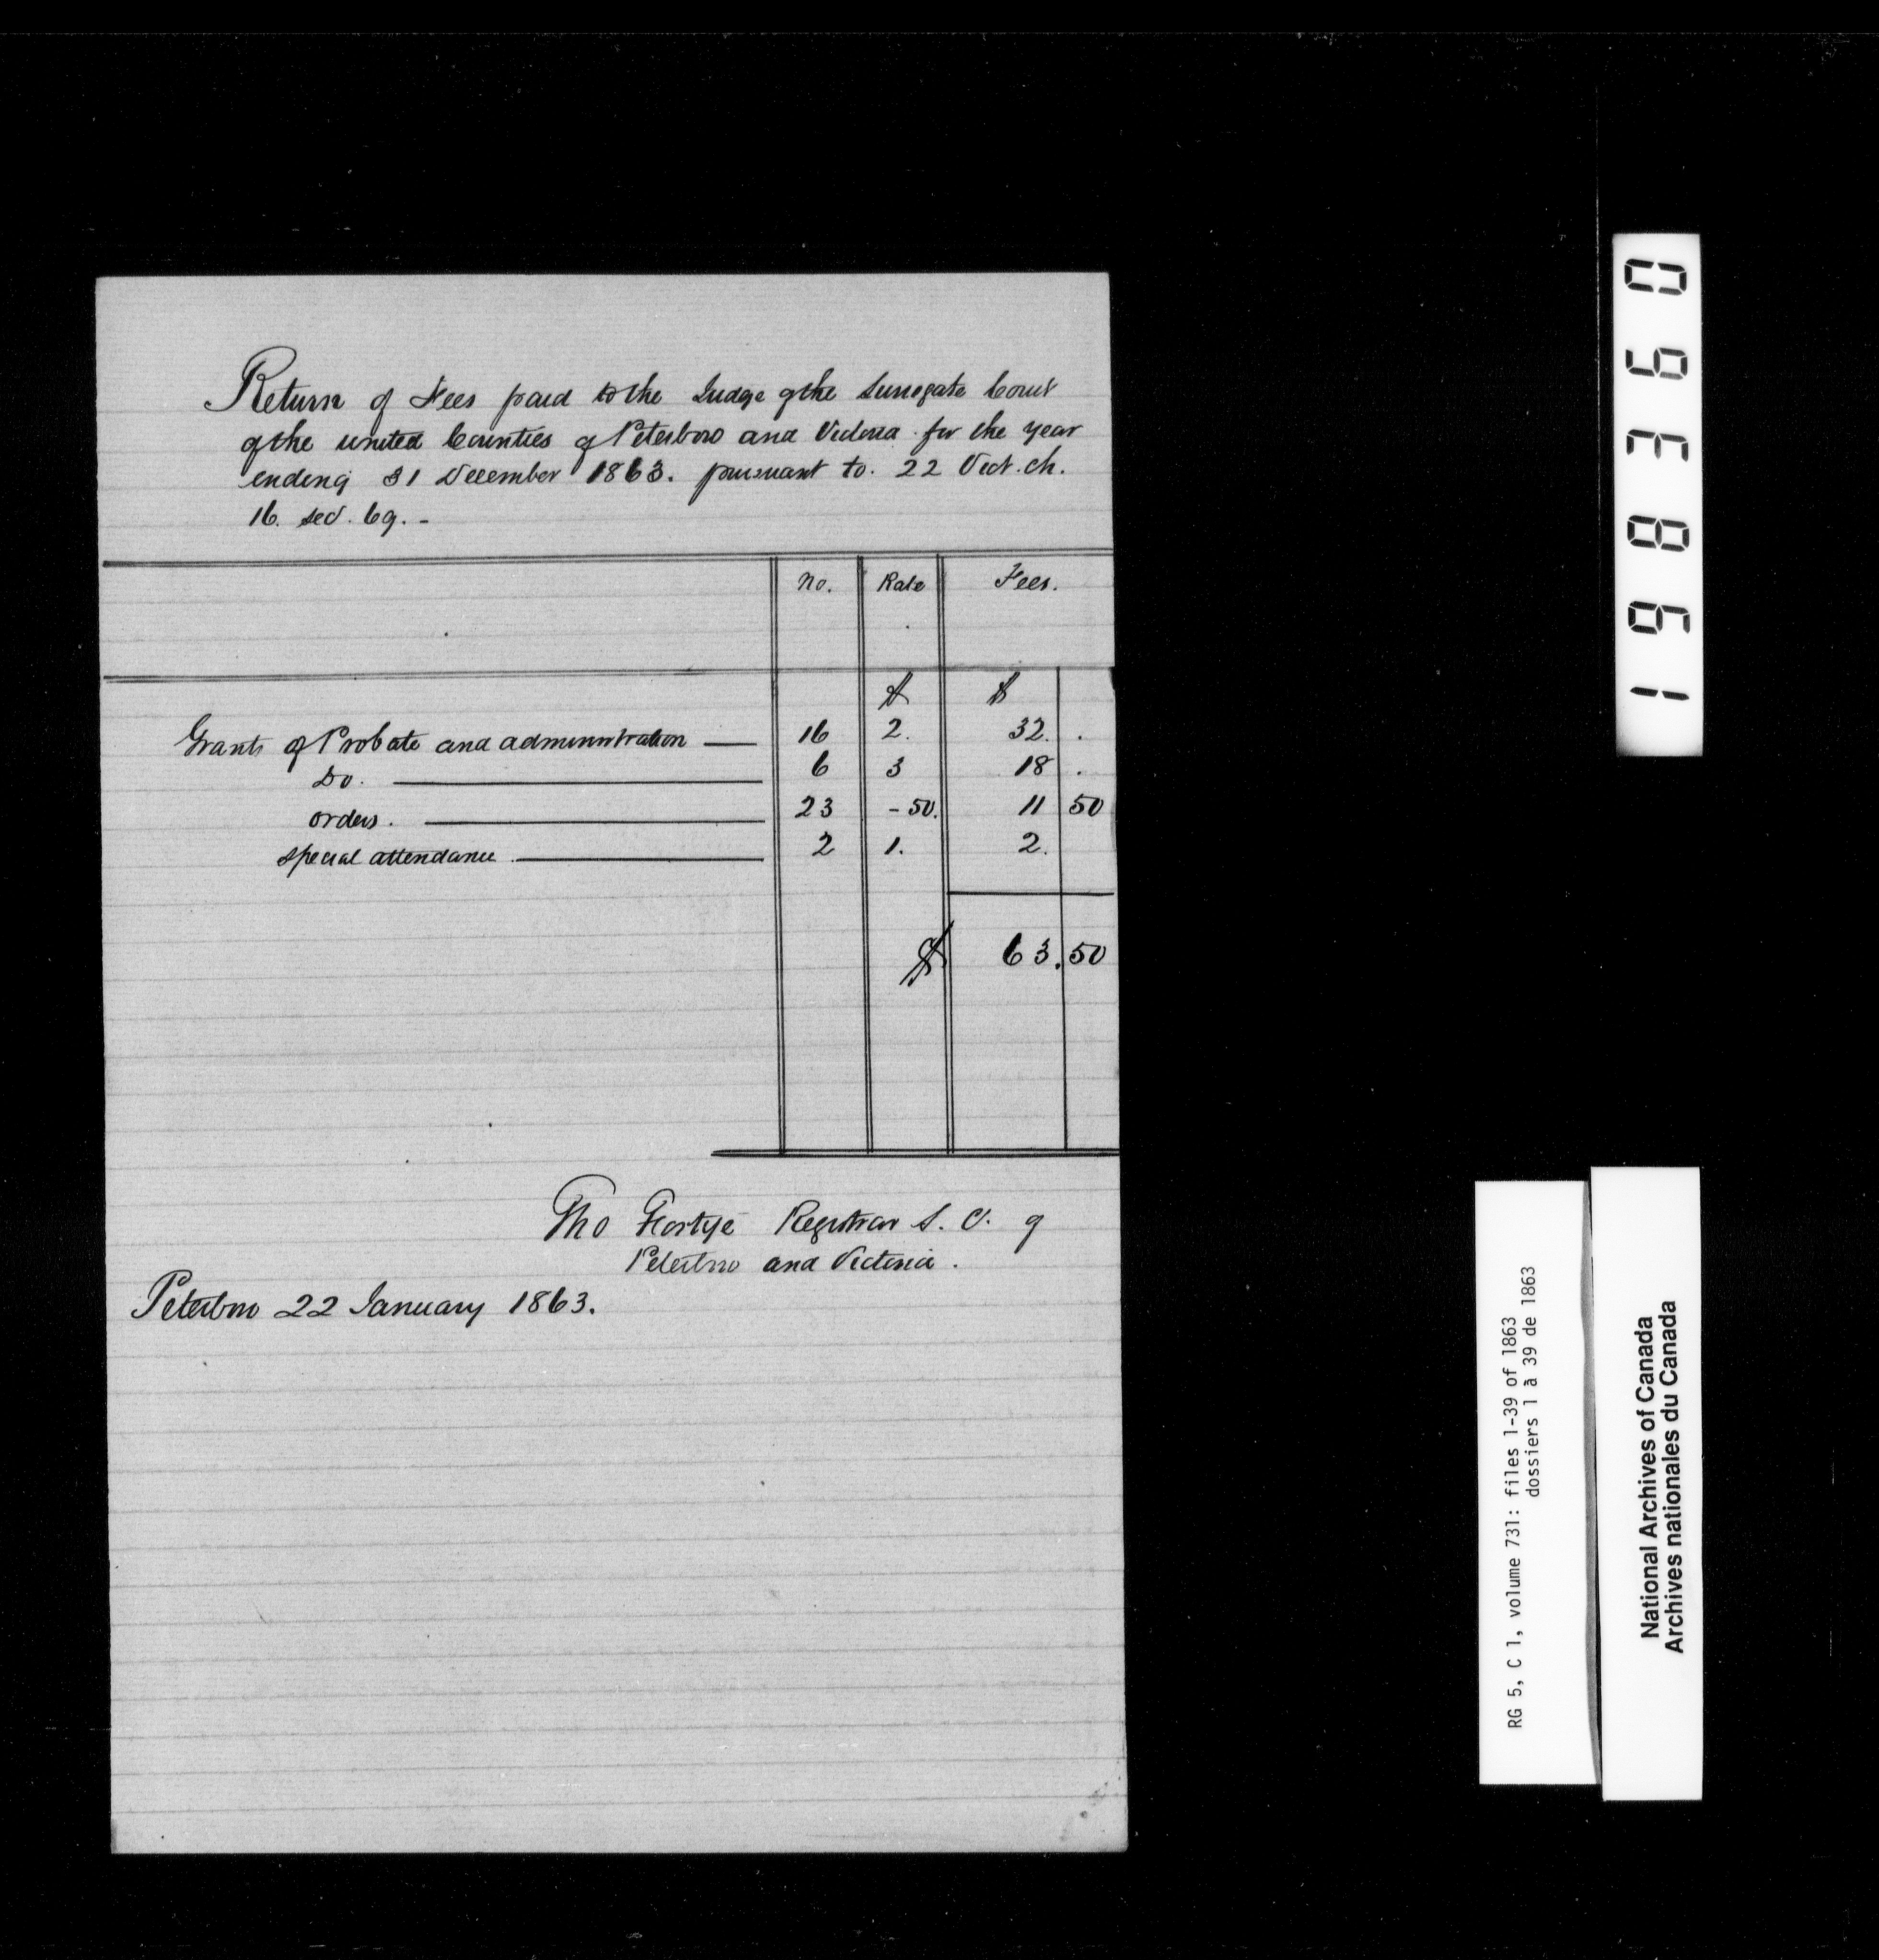 Return of Fees paid to the Judge of the Surrogate Court
of the united Counties of Peterboro and Victoria for the year
ending 31 December 1863. pursuant to. 22 Vict. ch.
16. sec. 69. -
No. Rate Fees.
$ $
Grants of Probate and administration — 16 2. 32. .
Do. — 6 3 18 .
orders. — 23 -50. 11 50
special attendance. — 2 1. 2.
$ 63.50
Tho Fortye Registrar S. C. of
Peterboro and Victoria.
Peterboro 22 January 1863.
198360
RG 5, C 1, volume 731: files 1-39 of 1863
dossiers 1 à 39 de 1863
National Archives of Canada
Archives nationales du Canada